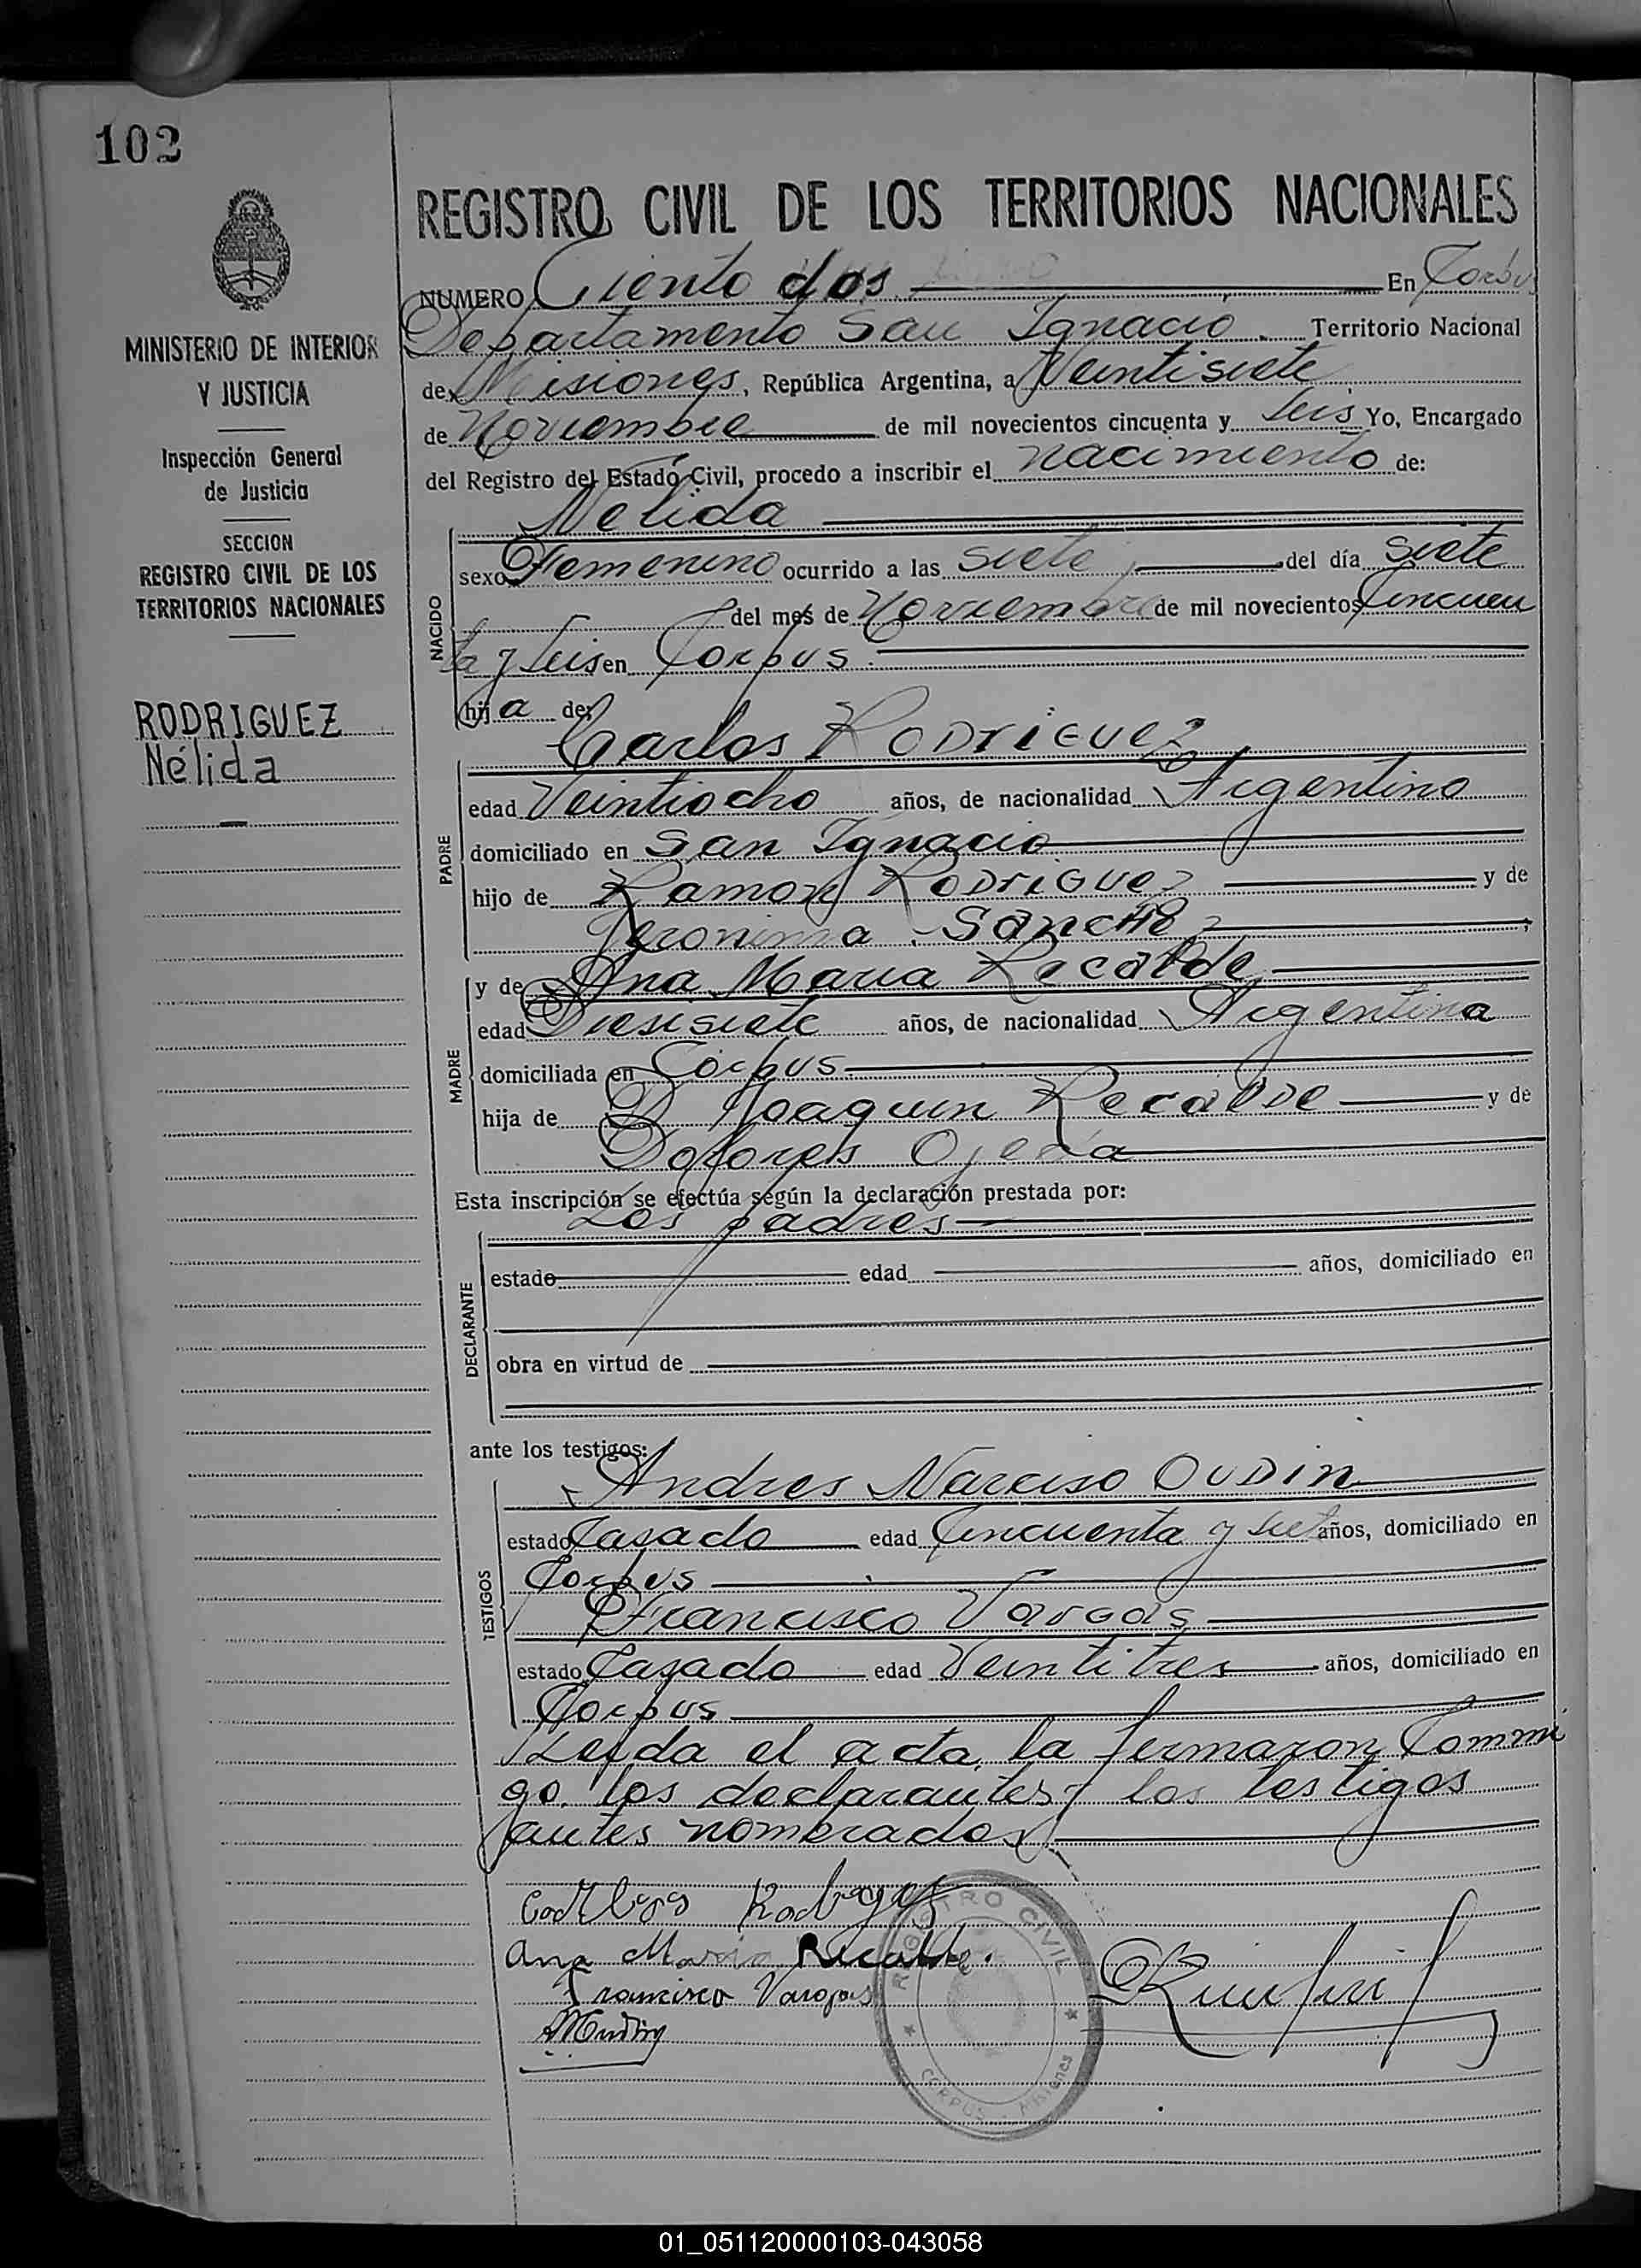 102
REGISTRO CIVIL DE LOS TERRITORIOS NACIONALES
NUMERO Ciento dos En Corpus
Departamento San Ignacio Territorio Nacional
de Misiones, República Argentina, a Veintisiete
de Noviembre de mil novecientos cincuenta y seis Yo, Encargado
del Registro del Estado Civil, procedo a inscribir el nacimiento de:
MINISTERIO DE INTERIOR
Y JUSTICIA
Inspección General
de Justicia
SECCION
REGISTRO CIVIL DE LOS
TERRITORIOS NACIONALES
RODRIGUEZ
Nélida
NACIDO
Nelida
sexo Femenino ocurrido a las siete del día siete
del mes de Noviembre de mil novecientos Cincuen
ta y seis en Corpus.
hija de:
PADRE
Carlos RODRIGUEZ
edad Veintiocho años, de nacionalidad Argentino
domiciliado en San Ignacio
hijo de Ramon RODRIGUEZ y de
Jeronima SANCHEZ
MADRE
y de Ana Maria Recalde
edad Diesisiete años, de nacionalidad Argentina
domiciliada en Corpus
hija de D. Joaquin Recalde y de
Dolores Ojeda
Esta inscripción se efectúa según la declaración prestada por:
DECLARANTE
Los padres
estado edad años, domiciliado en
obra en virtud de
ante los testigos:
TESTIGOS
Andres Narciso OUDIN
estado Casado edad Cincuenta y años, domiciliado en
Corpus
Francisco Vargas
estado Casado edad Veintitres años, domiciliado en
Corpus
Leida el acta, la firmaron Commi
go. los declarantes y los testigos
antes nombrados
Ana Maria Recalde.
Francisco Vargas
REGISTRO CIVIL
CORPUS - Misiones
01_051120000103-043058